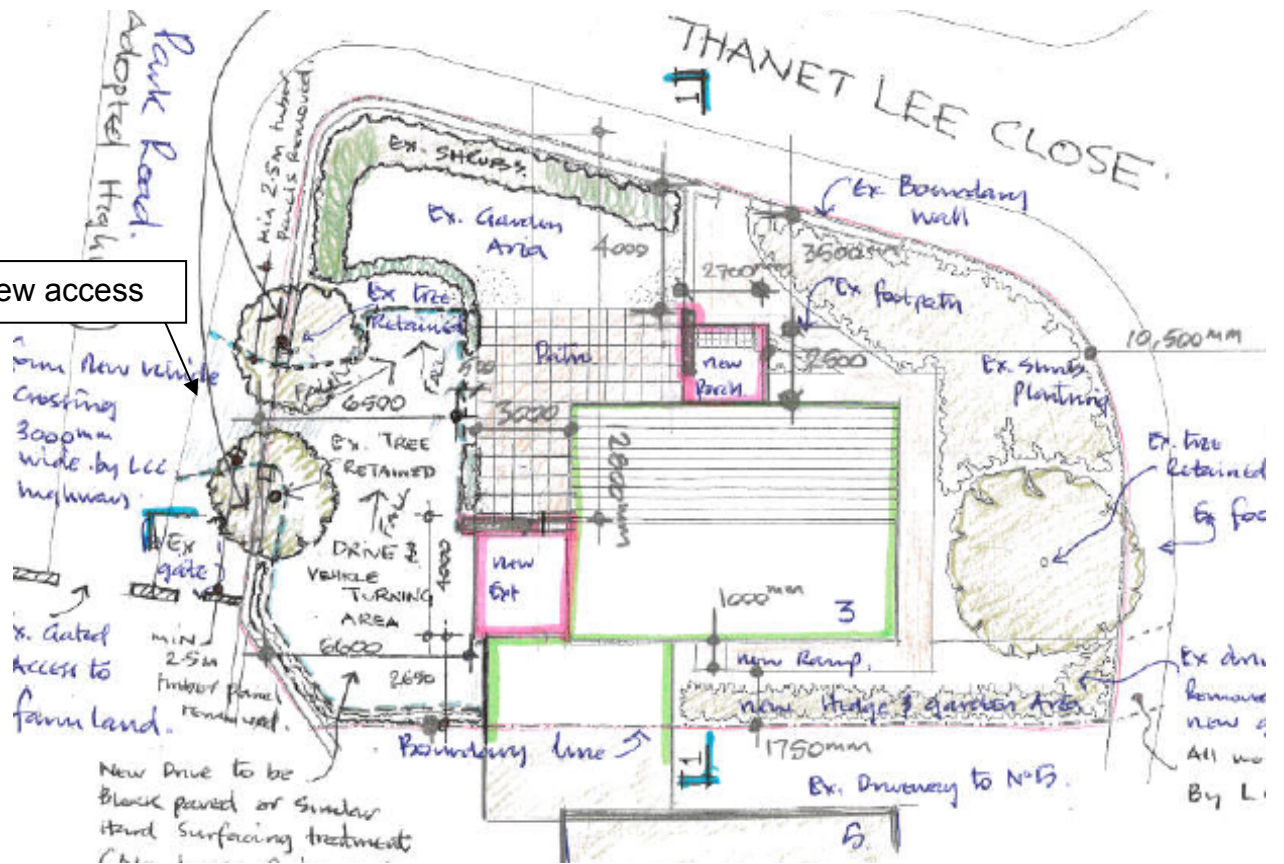 THANET LEE CLOSE.
Park Road.
Adopted High
min 2.5m timber
Panels Removed.
Ex. SHRUBS.
Ex. Garden
Area
4000
1
Ex Boundary
wall
3500mm
2700mm
Ex footpath
2500
10,500mm
ew access
Ex tree
Retained
Patio
new
Porch
Ex. Shrub
Planting
new vehicle
Crossing
3000mm
wide by LCC
highways.
6500
500
3000
2800mm
Ex. TREE
RETAINED
Ex. tree
Retained
Ex foo
Ex
gate
DRIVE &
VEHICLE
TURNING
AREA
4000
new
Ext
1000mm
3
x. Gated
Access to
farm land.
min
2.5m
timber panel
removed.
6600
2650
new Ramp.
new Hedge & garden Area
Ex driv
Remove
new g
All wo
By L
Boundary line
1750mm
1
Ex. Driveway to No 5.
New Drive to be
Block paved or Similar
Hard Surfacing treatment
5